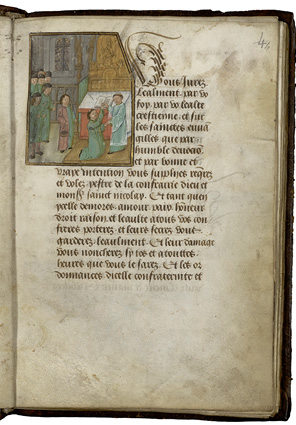 Vous Jurez
lealment par vo
foy, par vo lealte
crestienne et sur
les sainctes euua
gilles que par
humble deuocio
et par bonne et
vraye intention vous supplies requerez
et volez estre de la confrairie dieu et
monsr sainct nicolay. Et tant quen
pelle demores amour paix honeur
droit raison et leaulte a tous vos con
freres porterez et leurs secrez vous
garderez leaulment. Et leur damage
vous noncherez sy tos et a touttes
heures que vous le sarez. Et les or
donnances dicelle confraternite et